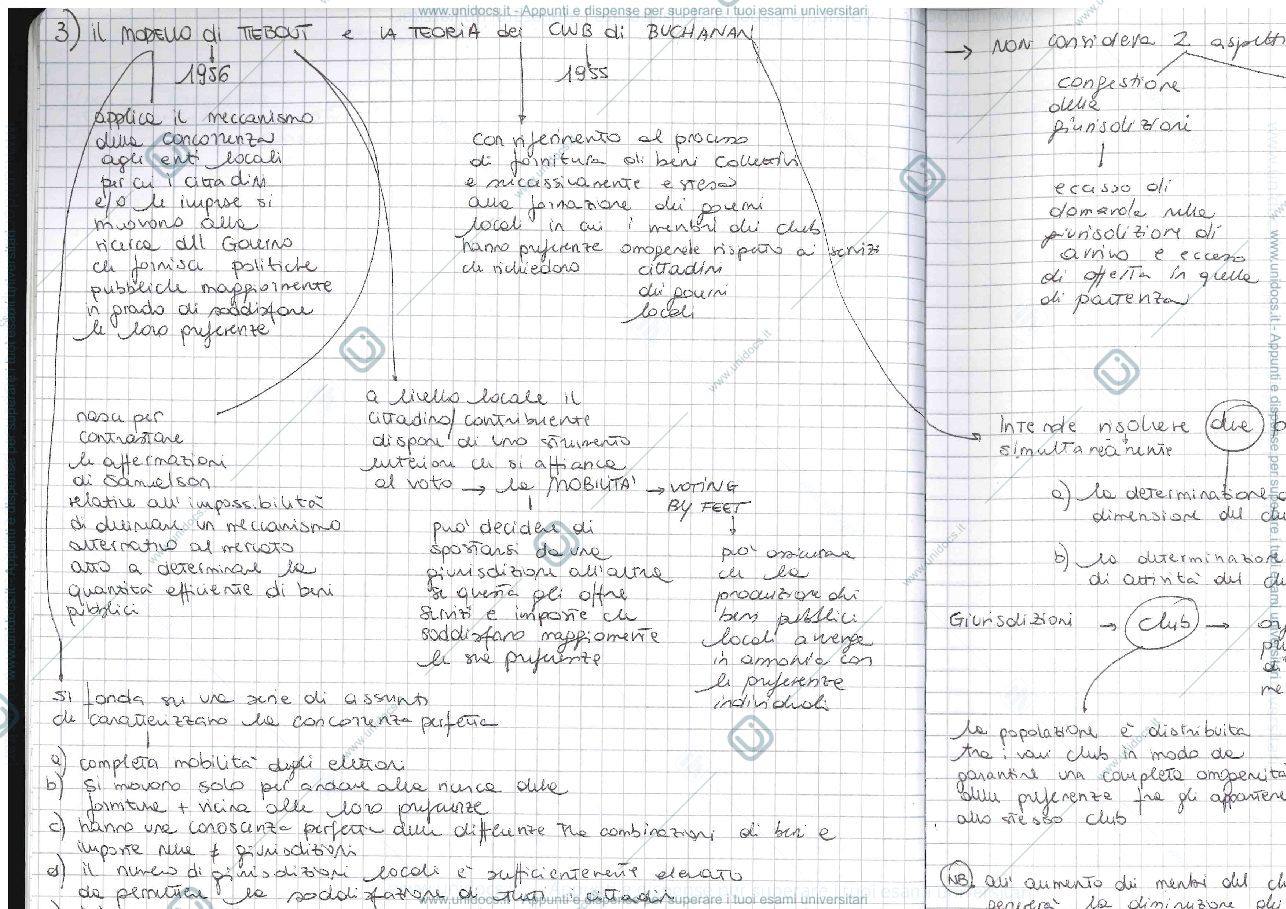 www.unidocs.it - Appunti e dispense per superare i tuoi esami universitari
3) il MODELLO di TIEBOUT e LA TEORIA dei CLUB di BUCHANAN
1956
1955
applica il meccanismo
della concorrenza
agli enti locali
per cui i cittadini
e/o le imprese si
muovono alla
ricerca del Governo
che fornisca politiche
pubbliche maggiormente
in grado di soddisfare
le loro preferenze
con riferimento al processo
di fornitura di beni collettivi
e successivamente estesa
alla formazione dei governi
locali in cui i membri dei club
hanno preferenze omogenee rispetto ai servizi
che richiedono
cittadini
dei governi
locali
nasce per
contrastare
le affermazioni
di Samuelson
relative all'impossibilità
di delineare un meccanismo
alternativo al mercato
atto a determinare la
quantità efficiente di beni
pubblici
a livello locale il
cittadino/contribuente
dispone di uno strumento
ulteriore che si affianca
al voto → la MOBILITA' → VOTING
BY FEET
può decidere di
spostarsi da una
giurisdizione all'altra
se questa gli offre
servizi e imposte che
soddisfano maggiormente
le sue preferenze
può assicurare
che la
produzione dei
beni pubblici
locali avvenga
in armonia con
le preferenze
individuali
si fonda su una serie di assunti
che caratterizzano la concorrenza perfetta
a) completa mobilità degli elettori
b) si muovono solo per andare alla ricerca delle
forniture + vicine alle loro preferenze
c) hanno una conoscenza perfetta delle differenze tra combinazioni di beni e
imposte nelle ≠ giurisdizioni
d) il numero di giurisdizioni locali è sufficientemente elevato
da permettere la soddisfazione di tutti i cittadini
→ NON considera 2 aspetti
congestione
delle
giurisdizioni
eccesso di
domanda nella
giurisdizione di
arrivo e eccesso
di offerta in quella
di partenza
Intende risolvere due
simultaneamente
a) la determinazione
dimensione del
b) la determinazione
di attività del
Giurisdizioni → club →
la popolazione è distribuita
tra i vari club in modo da
garantire una completa omogeneità
delle preferenze fra gli
allo stesso club
NB. all'aumento dei membri del
genererà la diminuzione
www.unidocs.it - Appunti e dispense per superare i tuoi esami universitari